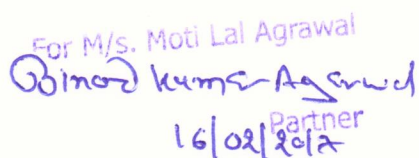 For M/s. Moti Lal Agrawal
Binod Kumar Agarwal
Partner
16/02/2017